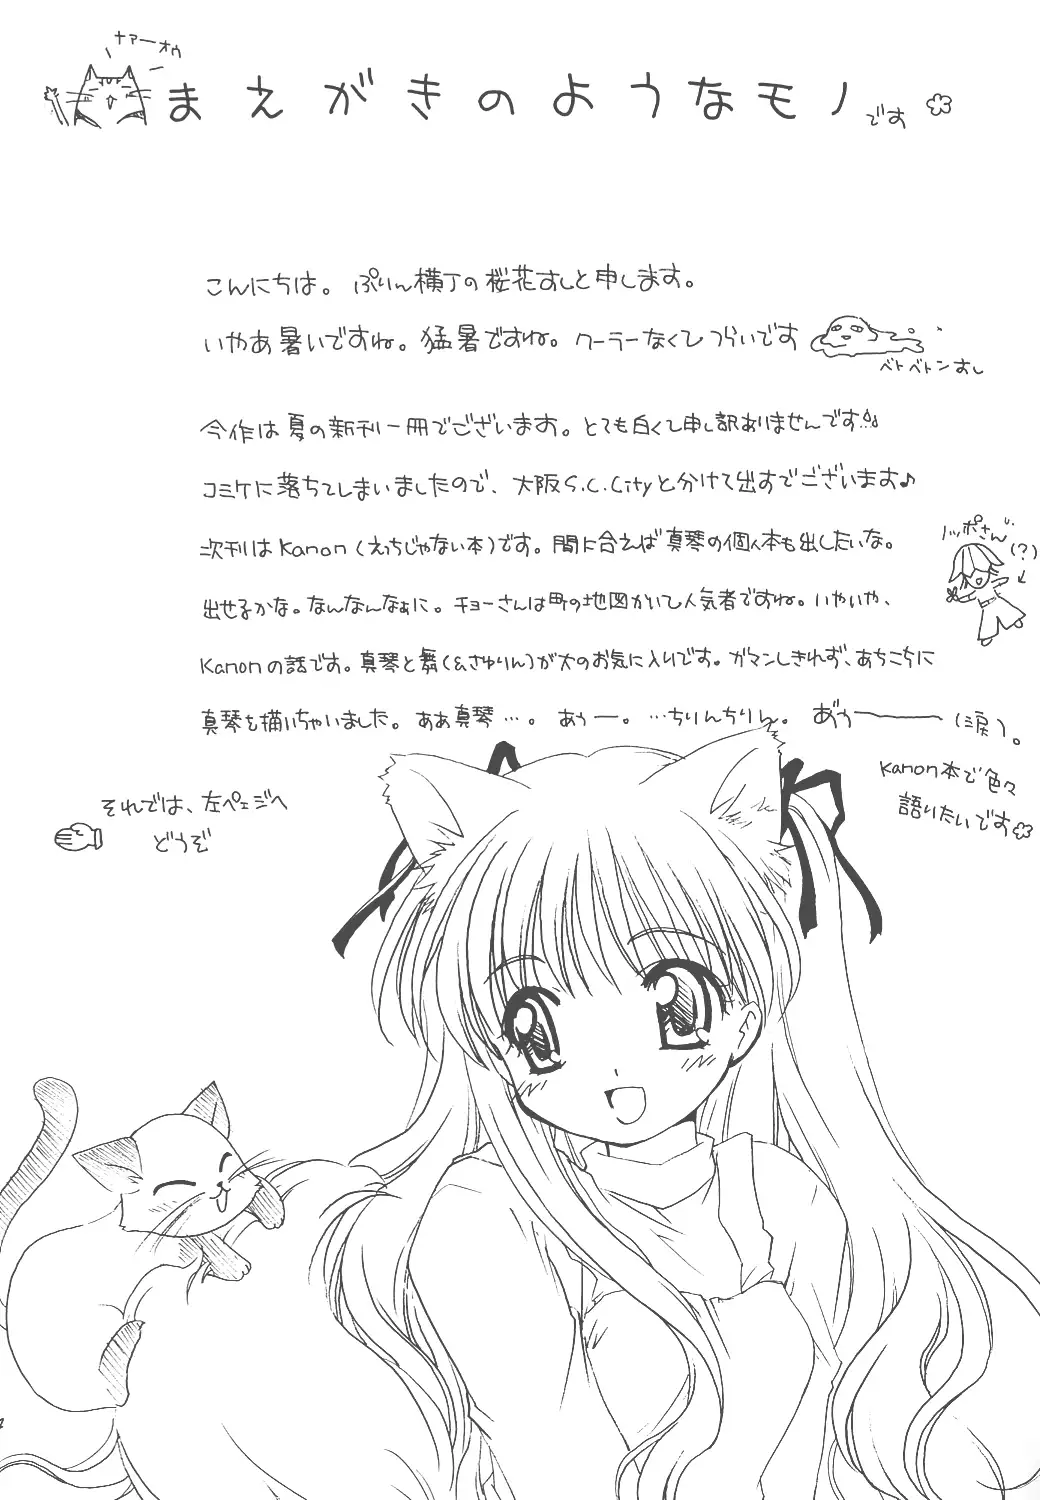 ナァーオゥ
まえがきのようなモノです
こんにちは。ぷりん横丁の桜花すしと申します。
いやあ暑いですね。猛暑ですね。クーラーなくてつらいです
ベトベトンすし
今作は夏の新刊一冊でございます。とても白くて申し訳ありませんです!!
コミケに落ちてしまいましたので、大阪S.C.Cityと分けて出すでございます♪
次刊はKanon(えっちじゃない本)です。間に合えば真琴の個人本も出したいな。
ノッポさん
(?)
出せるかな。なんなんなぁに。チョーさんは町の地図かいて人気者ですね。いやいや、
Kanonの話です。真琴と舞(&さゆりん)が大のお気に入りです。ガマンしきれず、あちこちに
真琴を描いちゃいました。ああ真琴…。あぅー。…ちりんちりん。あぅ――(涙)。
Kanon本で色々
語りたいです
それでは、左ページへ
どうぞ